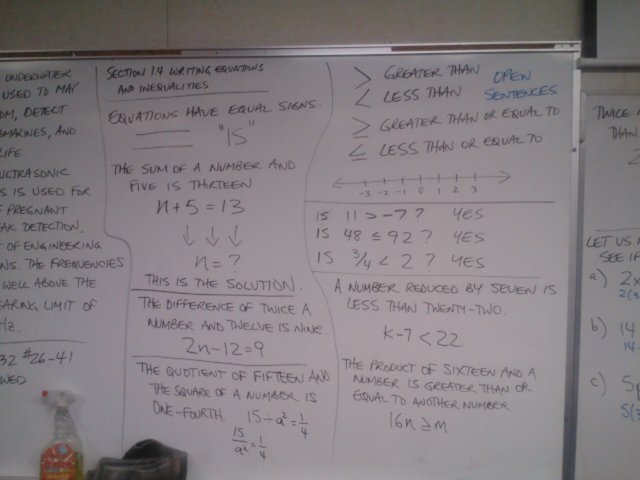 UNDERWATER
USED TO MAP
DETECT
AND
LIFE
ULTRASONIC
IS USED FOR
PREGNANT
DETECTION,
OF ENGINEERING
THE FREQUENCIES
WELL ABOVE THE
LIMIT OF
HZ.
32 #26-41
SECTION 1.4 WRITING EQUATIONS
AND INEQUALITIES
EQUATIONS HAVE EQUAL SIGNS.
"IS"
THE SUM OF A NUMBER AND
FIVE IS THIRTEEN
n+5=13
↓ ↓ ↓
n=?
THIS IS THE SOLUTION.
THE DIFFERENCE OF TWICE A
NUMBER AND TWELVE IS NINE.
2n-12=9
THE QUOTIENT OF FIFTEEN AND
THE SQUARE OF A NUMBER IS
ONE-FOURTH. 15÷a²=1/4
15/a²=1/4
> GREATER THAN OPEN
< LESS THAN SENTENCES
≥ GREATER THAN OR EQUAL TO
≤ LESS THAN OR EQUAL TO
-3 -2 -1 0 1 2 3
IS 11 > -7? YES
IS 48 ≤ 92? YES
IS 3/4 < 2? YES
A NUMBER REDUCED BY SEVEN IS
LESS THAN TWENTY-TWO.
k-7<22
THE PRODUCT OF SIXTEEN AND A
NUMBER IS GREATER THAN OR
EQUAL TO ANOTHER NUMBER
16n≥m
TWICE
THAN
2
LET US
SEE IF
a) 2x
b) 14
14
c) 5p